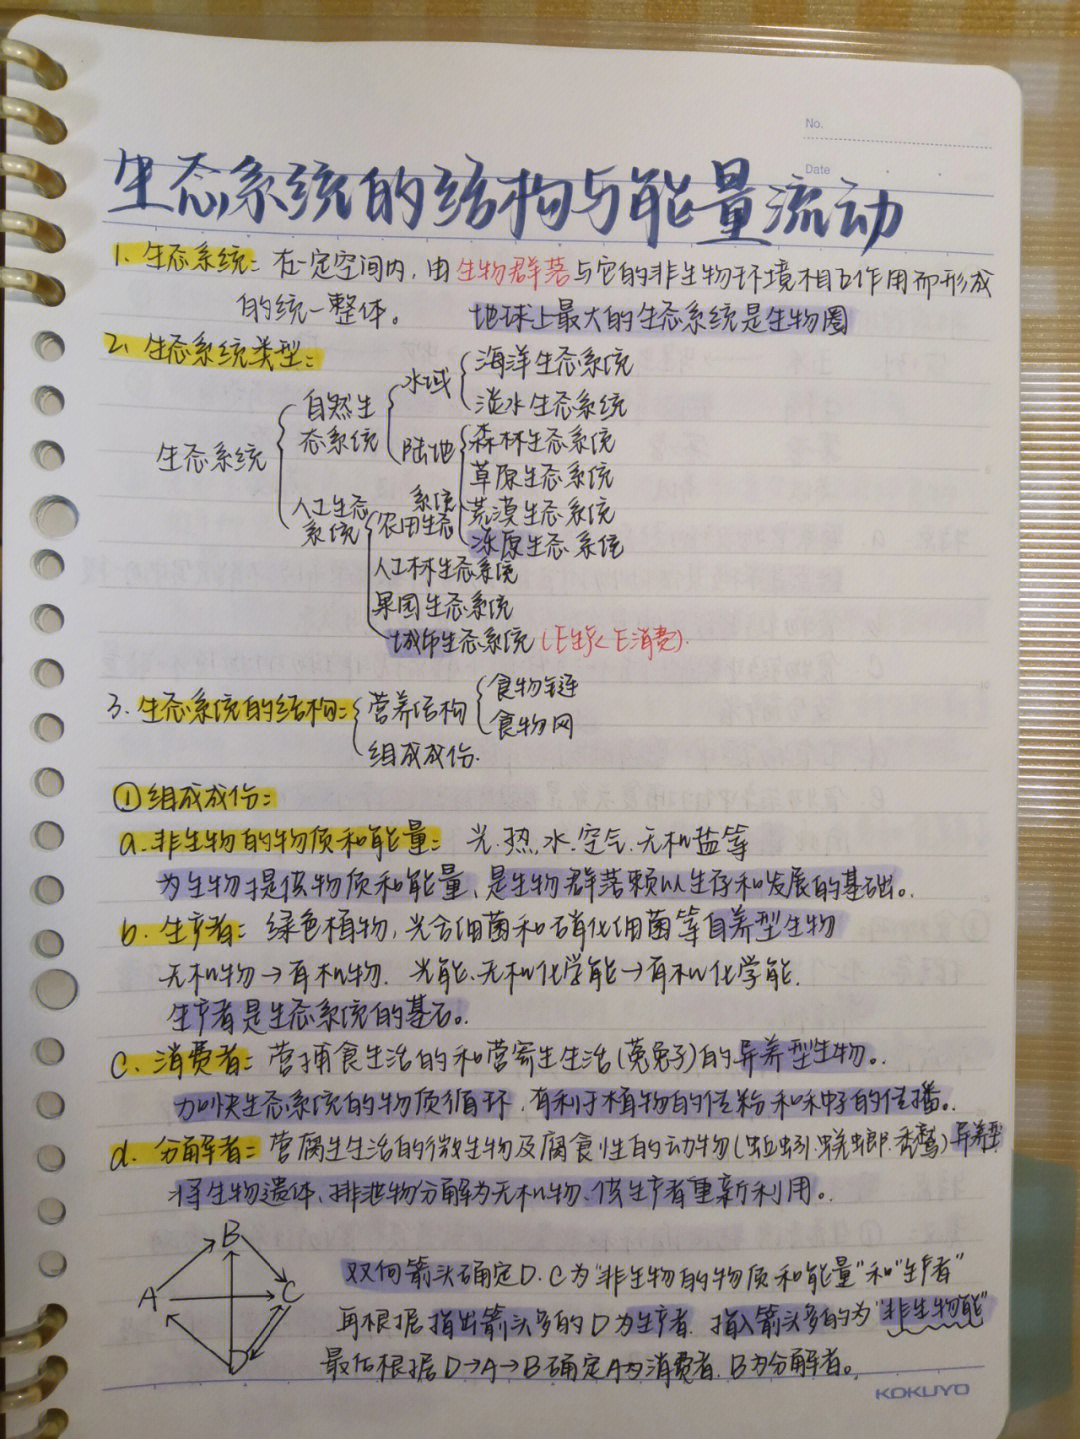 No.
Date
生态系统的结构与能量流动
1. 生态系统: 在一定空间内, 由生物群落与它的非生物环境相互作用而形成
的统一整体。 地球上最大的生态系统是生物圈
2. 生态系统类型:
生态系统
自然生
态系统
水域
海洋生态系统
淡水生态系统
陆地
森林生态系统
草原生态系统
荒漠生态系统
冻原生态系统
人工生态
系统
农田生态
系统
人工林生态系统
果园生态系统
城市生态系统 (E生产<E消费).
3. 生态系统的结构:
营养结构
食物链
食物网
组成成份.
①组成成份:
a. 非生物的物质和能量: 光.热.水.空气.无机盐等
为生物提供物质和能量, 是生物群落赖以生存和发展的基础。
b. 生产者: 绿色植物, 光合细菌和硝化细菌等自养型生物
无机物→有机物. 光能.无机化学能→有机化学能.
生产者是生态系统的基石。
C. 消费者: 营捕食生活的和营寄生生活(菟丝子)的异养型生物。
加快生态系统的物质循环, 有利于植物的传粉和种子的传播。
d. 分解者: 营腐生生活的微生物及腐食性的动物(蚯蚓.蜣螂.秃鹫)异养型
将生物遗体、排泄物分解为无机物、供生产者重新利用。
B
A
C
D
双向箭头确定D.C为"非生物的物质和能量"和"生产者"
再根据指出箭头多的D为生产者. 指入箭头多的为"非生物能"
最后根据D→A→B确定A为消费者. B为分解者。
KOKUYO